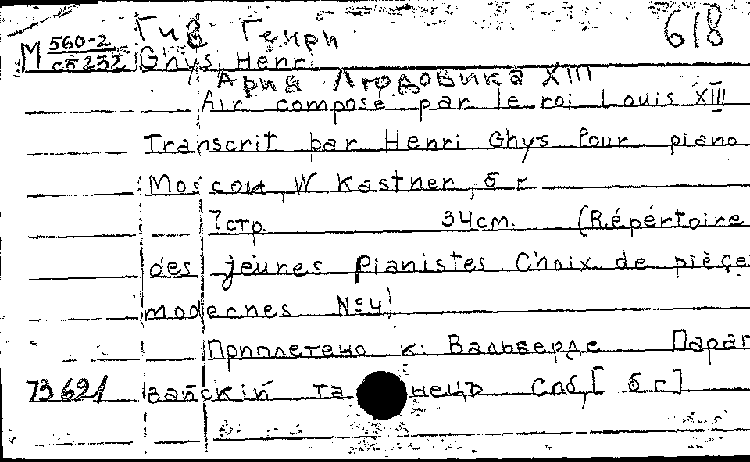 Гиз Генри 618
М 560-2
сб 232 Ghys Henri
Ария Людовика XIII
Air compose par le roi Louis XIII
Transcrit par Henri Ghys Pour piano
Moscou, W Kastner, б г
7стр 34cm. (Répértoire
des jeunes pianistes Choix de pièce
modernes №4)
Приплетено к: Вальверде Параг
73621 вайскiй та нецъ Спб, [б г]